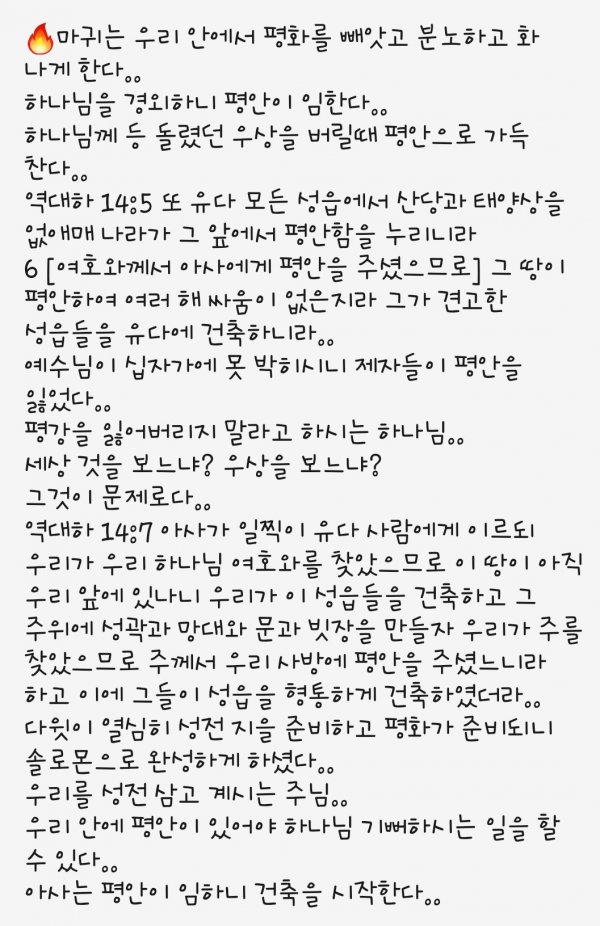 🔥마귀는 우리 안에서 평화를 빼앗고 분노하고 화
나게 한다。。
하나님을 경외하니 평안이 임한다。。
하나님께 등 돌렸던 우상을 버릴때 평안으로 가득
찬다。。
역대하 14:5 또 유다 모든 성읍에서 산당과 태양상을
없애매 나라가 그 앞에서 평안함을 누리니라
6 [여호와께서 아사에게 평안을 주셨으므로] 그 땅이
평안하여 여러 해 싸움이 없은지라 그가 견고한
성읍들을 유다에 건축하니라。。
예수님이 십자가에 못 박히시니 제자들이 평안을
잃었다。。
평강을 잃어버리지 말라고 하시는 하나님。。
세상 것을 보느냐? 우상을 보느냐?
그것이 문제로다。。
역대하 14:7 아사가 일찍이 유다 사람에게 이르되
우리가 우리 하나님 여호와를 찾았으므로 이 땅이 아직
우리 앞에 있나니 우리가 이 성읍들을 건축하고 그
주위에 성곽과 망대와 문과 빗장을 만들자 우리가 주를
찾았으므로 주께서 우리 사방에 평안을 주셨느니라
하고 이에 그들이 성읍을 형통하게 건축하였더라。。
다윗이 열심히 성전 지을 준비하고 평화가 준비되니
솔로몬으로 완성하게 하셨다。。
우리를 성전 삼고 계시는 주님。。
우리 안에 평안이 있어야 하나님 기뻐하시는 일을 할
수 있다。。
아사는 평안이 임하니 건축을 시작한다。。